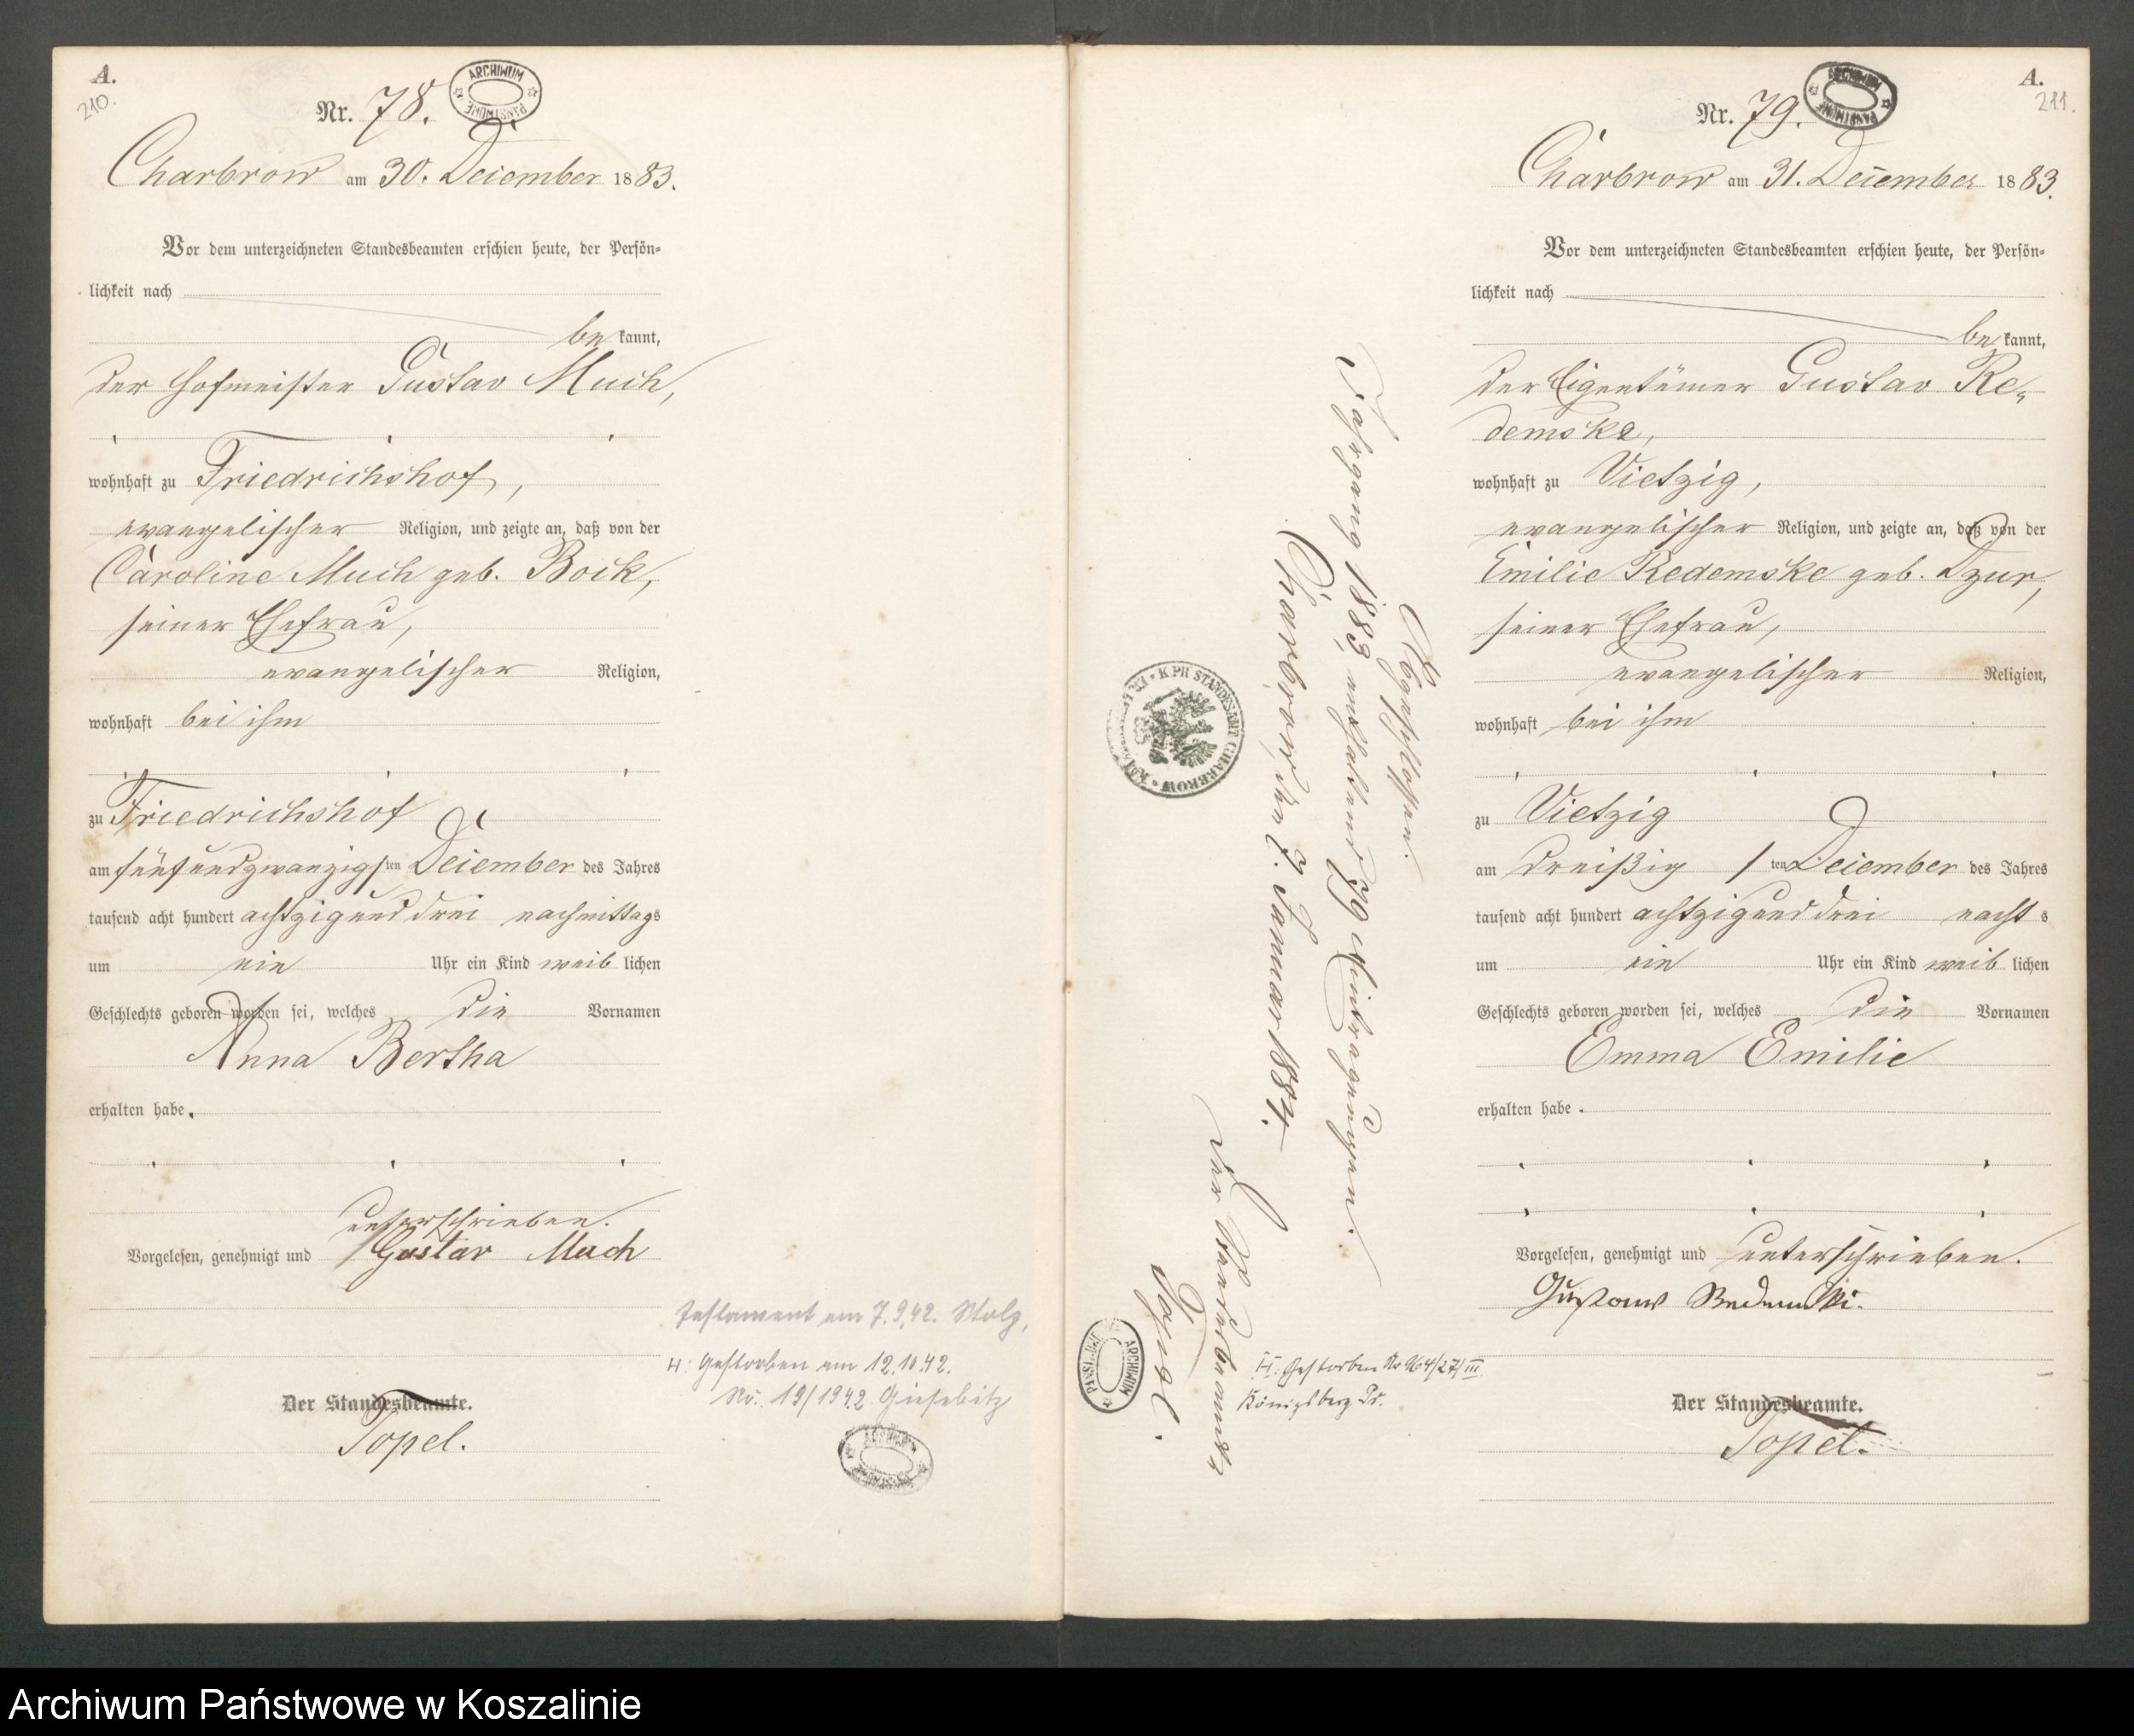 A.
210.
Nr. 78.
ARCHIWUM PAŃSTWOWE
Charbrow am 30. December 1883.
Vor dem unterzeichneten Standesbeamten erschien heute, der Persön-
lichkeit nach
be kannt,
der Hofmeister Gustav Much,
wohnhaft zu Friedrichshof,
evangelischer Religion, und zeigte an, daß von der
Caroline Much geb. Bock,
seiner Ehefrau,
evangelischer Religion,
wohnhaft bei ihm
zu Friedrichshof
am fünfundzwanzigsten December des Jahres
tausend acht hundert achtzigunddrei nachmittags
um ein Uhr ein Kind weiblichen
Geschlechts geboren worden sei, welches die Vornamen
Anna Bertha
erhalten habe.
unterschrieben.
Vorgelesen, genehmigt und Gustav Much
Der Standesbeamte.
Topel.
Testament am 7.9.42. Stolp,
H: Gestorben am 12.10.42.
No. 19/1942 Giesebitz
A.
211.
Nr. 79.
ARCHIWUM PAŃSTWOWE
Charbrow am 31. December 1883.
Vor dem unterzeichneten Standesbeamten erschien heute, der Persön-
lichkeit nach
be kannt,
der Eigentümer Gustav Re-
demske,
wohnhaft zu Vietzig,
evangelischer Religion, und zeigte an, daß von der
Emilie Redemske geb. Dzur,
seiner Ehefrau,
evangelischer Religion,
wohnhaft bei ihm
zu Vietzig
am dreißigsten December des Jahres
tausend acht hundert achtzigunddrei nachts
um ein Uhr ein Kind weiblichen
Geschlechts geboren worden sei, welches die Vornamen
Emma Emilie
erhalten habe.
Vorgelesen, genehmigt und unterschrieben.
Gustav Redemski.
Der Standesbeamte.
Topel.
Abgeschlossen.
Jahrgang 1883 enthaltend 79 Eintragungen.
Charbrow, den 2. Januar 1884.
Der Standesbeamte
Topel.
STANDESAMT CHARBROW
H: Gestorben No 964/27/III
Königsberg Pr.
Archiwum Państwowe w Koszalinie